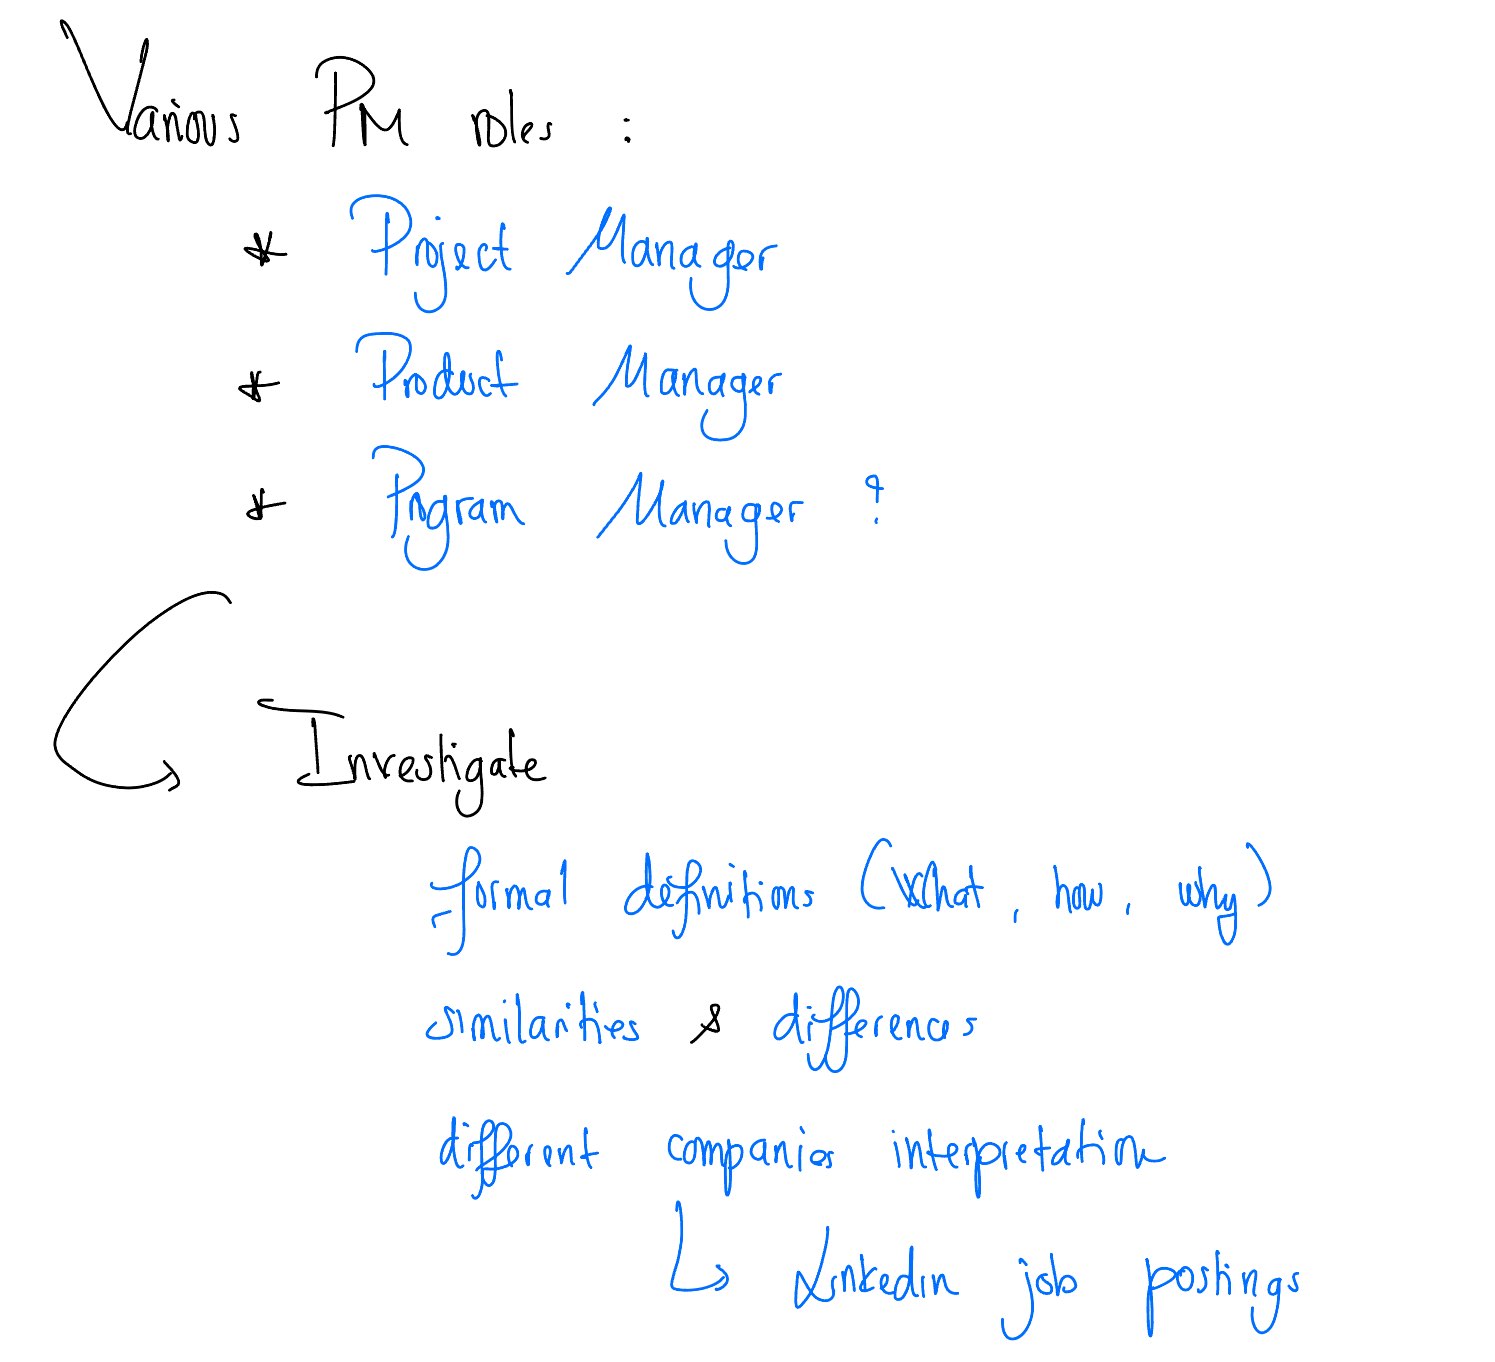 Various PM roles :
* Project Manager
* Product Manager
* Program Manager ?
Investigate
formal definitions (What, how, why)
similarities & differences
different companies interpretation
Linkedin job postings